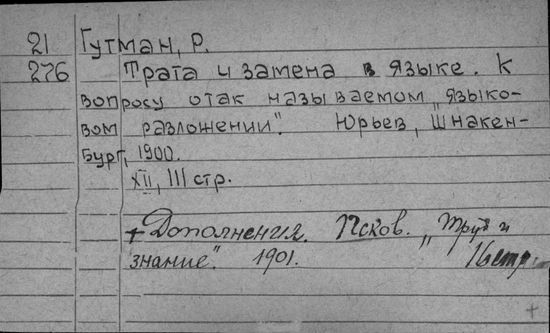 21 Гутман, Р.
276 Трата и замена в языке. К
вопросу отак называемом „языко-
вом разложении". Юрьев, Шнакен-
бург, 1900.
XII, III стр.
+ Дополнения. Псков. „Труд и
знание". 1901. 16 стр.
+